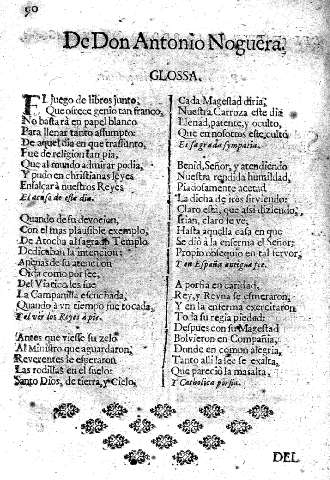 90
De Don Antonio Noguera.
GLOSSA.
EL Juego de libros junto,
Que ofrece genio tan franco,
No bastarà en papel blanco
Para llenar tanto assumpto:
De aquel dia en que trassunto,
Fue de religion tan pia,
Que al mundo admirar podia,
Y pudo en christianas leyes
Ensalçar à nuestros Reyes
El acaso de este dia.
Quando de su devocion,
Con el mas plausible exemplo,
De Atocha al sagrado Templo
Dedicaban la intencion:
Apenas de su atencion
Del Viatico les fue
La Campanilla escuchada,
Quando à vn tiempo fue tocada,
Y el vèr los Reyes à pie.
Antes que viesse su zelo
Al Ministro que aguardaron,
Reverentes le esperaron
Las rodillas en el suelo:
Santo Dios, de tierra, y Cielo,
Cada Magestad diria,
Nuestra Carroza este dia
Llenad, patente, y oculto,
Que en nosotros este culto
Es sagrada sympatia.
Benid, Señor, y atendiendo
Nuestra rendida humildad,
Piadosamente acetad
La dicha de iros sirviendo:
Claro està, que assi diziendo,
Irian, claro se vè,
Hasta aquella casa en que
Se diò à la enferma el Señor;
Proprio obsequio en tal fervor,
Y en España antigua fee.
A porfia en caridad,
Rey, y Reyna se esmeraron,
Y en la enferma exercitaron
Toda su regia piedad:
Despues con su Magestad
Bolvieron en Compañia,
Donde en comun alegria,
Tanto alli la fee se exalta,
Que pareciò la mas alta,
Y Catholica porfia.
DEL